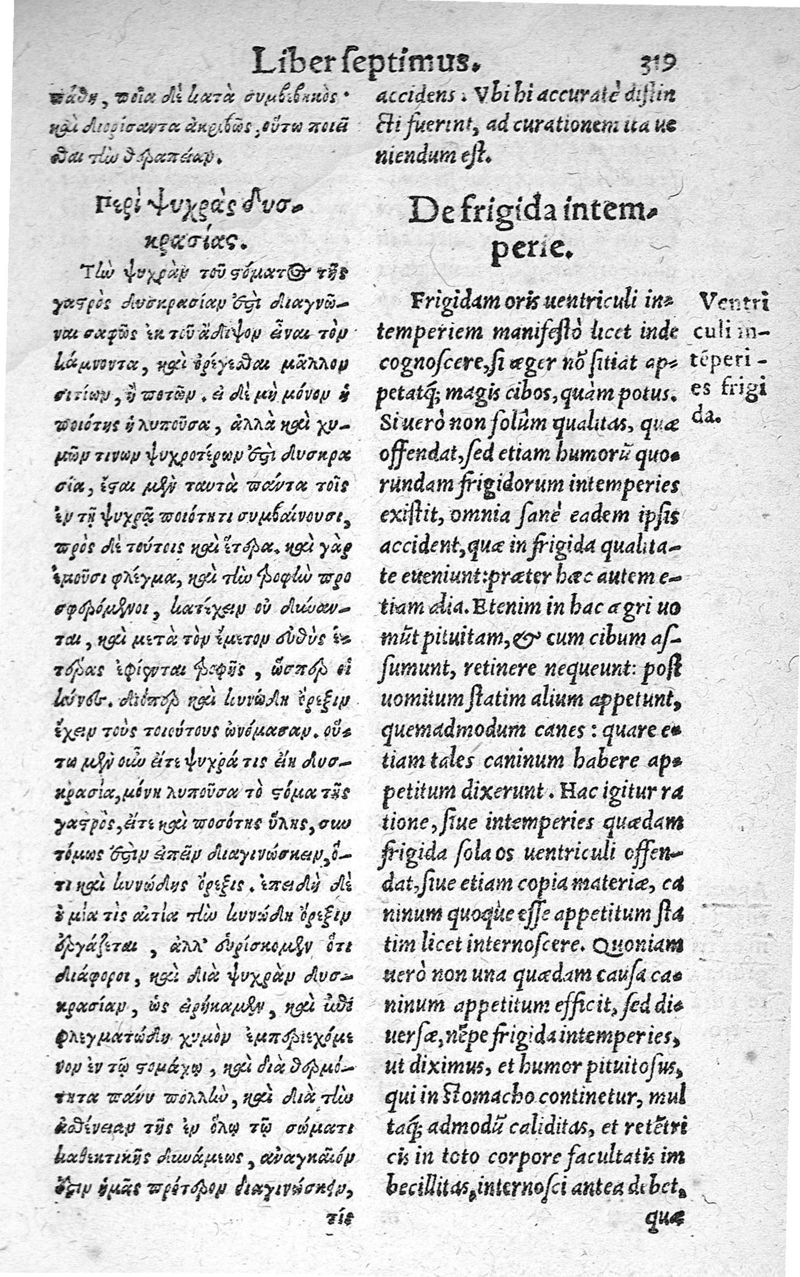 Liber septimus. 319
πάθη, ποῖα δὲ κατὰ συμβεβηκὸς·
καὶ διορίσαντα ἀκριβῶς, οὕτω ποιεῖ
σθαι τὴν θεραπείαν.
Περὶ ψυχρᾶς δυσ-
κρασίας.
Τὴν ψυχρὰν τοῦ στόματος τῆς
γαστρὸς δυσκρασίαν ἔστι διαγνῶ-
ναι σαφῶς ἐκ τοῦ ἄδιψον εἶναι τὸν
κάμνοντα, καὶ ὀρέγεσθαι μᾶλλον
σιτίων, ἢ ποτῶν. εἰ δὲ μὴ μόνον ἡ
ποιότης ἡ λυποῦσα, ἀλλὰ καὶ χυ-
μῶν τινων ψυχροτέρων ἔστι δυσκρα
σία, ἔσται μὲν ταυτὰ πάντα τοῖς
ἐν τῇ ψυχρᾷ ποιότητι συμβαίνουσι,
πρὸς δὲ τούτοις καὶ ἕτερα. καὶ γὰρ
ἐμοῦσι φλέγμα, καὶ τὴν τροφὴν προ
σφερόμενοι, κατέχειν οὐ δύναν-
ται, καὶ μετὰ τὸν ἔμετον εὐθὺς ἑ-
τέρας ἐφίενται τροφῆς, ὥσπερ οἱ
κύνες. διόπερ καὶ κυνώδη ὄρεξιν
ἔχειν τοὺς τοιούτους ὠνόμασαν. οὕ-
τω μὲν οὖν εἴτε ψυχρά τις εἴη δυσ-
κρασία, μόνη λυποῦσα τὸ στόμα τῆς
γαστρὸς, εἴτε καὶ ποσότης ὕλης, συν
τόμως ἔστιν εἰπεῖν διαγινώσκειν, ὅ-
τι καὶ κυνώδης ὄρεξις. ἐπειδὴ δὲ
ὀ μία τις αἰτία τὴν κυνώδη ὄρεξιν
ἐργάζεται, ἀλλ' εὑρίσκομεν ὅτι
διάφοροι, καὶ διὰ ψυχρὰν δυσ-
κρασίαν, ὡς εἰρήκαμεν, καὶ διὰ
φλεγματώδη χυμὸν ἐμπεριεχόμε
νον ἐν τῷ στομάχῳ, καὶ διὰ θερμό-
τητα πάνυ πολλὴν, καὶ διὰ τὴν
ἀσθένειαν τῆς ἐν ὅλῳ τῷ σώματι
καθεκτικῆς δυνάμεως, ἀναγκαῖόν
ἔστιν ἡμᾶς πρότερον διαγινώσκειν,
τίς
accidens. Vbi hi accuratè distin
cti fuerint, ad curationem ita ue
niendum est.
De frigida intem-
perie.
Frigidam oris uentriculi in-
temperiem manifestò licet inde
cognoscere, si æger nõ sitiat ap-
petatq́; magis cibos, quàm potus.
Si uerò non solũm qualitas, quæ
offendat, sed etiam humorũ quo-
rundam frigidorum intemperies
existit, omnia sanè eadem ipsis
accident, quæ in frigida qualita-
te eueniunt: præter hæc autem e-
tiam alia. Etenim in hac ægri uo
mũt pituitam, & cum cibum as-
sumunt, retinere nequeunt: post
uomitum statim alium appetunt,
quemadmodum canes: quare e-
tiam tales caninum habere ap-
petitum dixerunt. Hac igitur ra
tione, siue intemperies quædam
frigida sola os uentriculi offen-
dat, siue etiam copia materiæ, ca
ninum quoque esse appetitum sta
tim licet internoscere. Quoniam
uerò non una quædam causa ca-
ninum appetitum efficit, sed di-
uersæ, nẽpe frigida intemperies,
ut diximus, et humor pituitosus,
qui in stomacho continetur, mul
taq́; admodũ caliditas, et retẽtri
cis in toto corpore facultatis im
becillitas, internosci antea debet,
quæ
Ventri
culi in-
tẽperi-
es frigi
da.